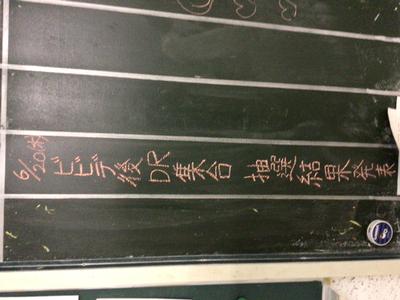 6/20(木) ビビデ後 DR集合 抽選結果発表